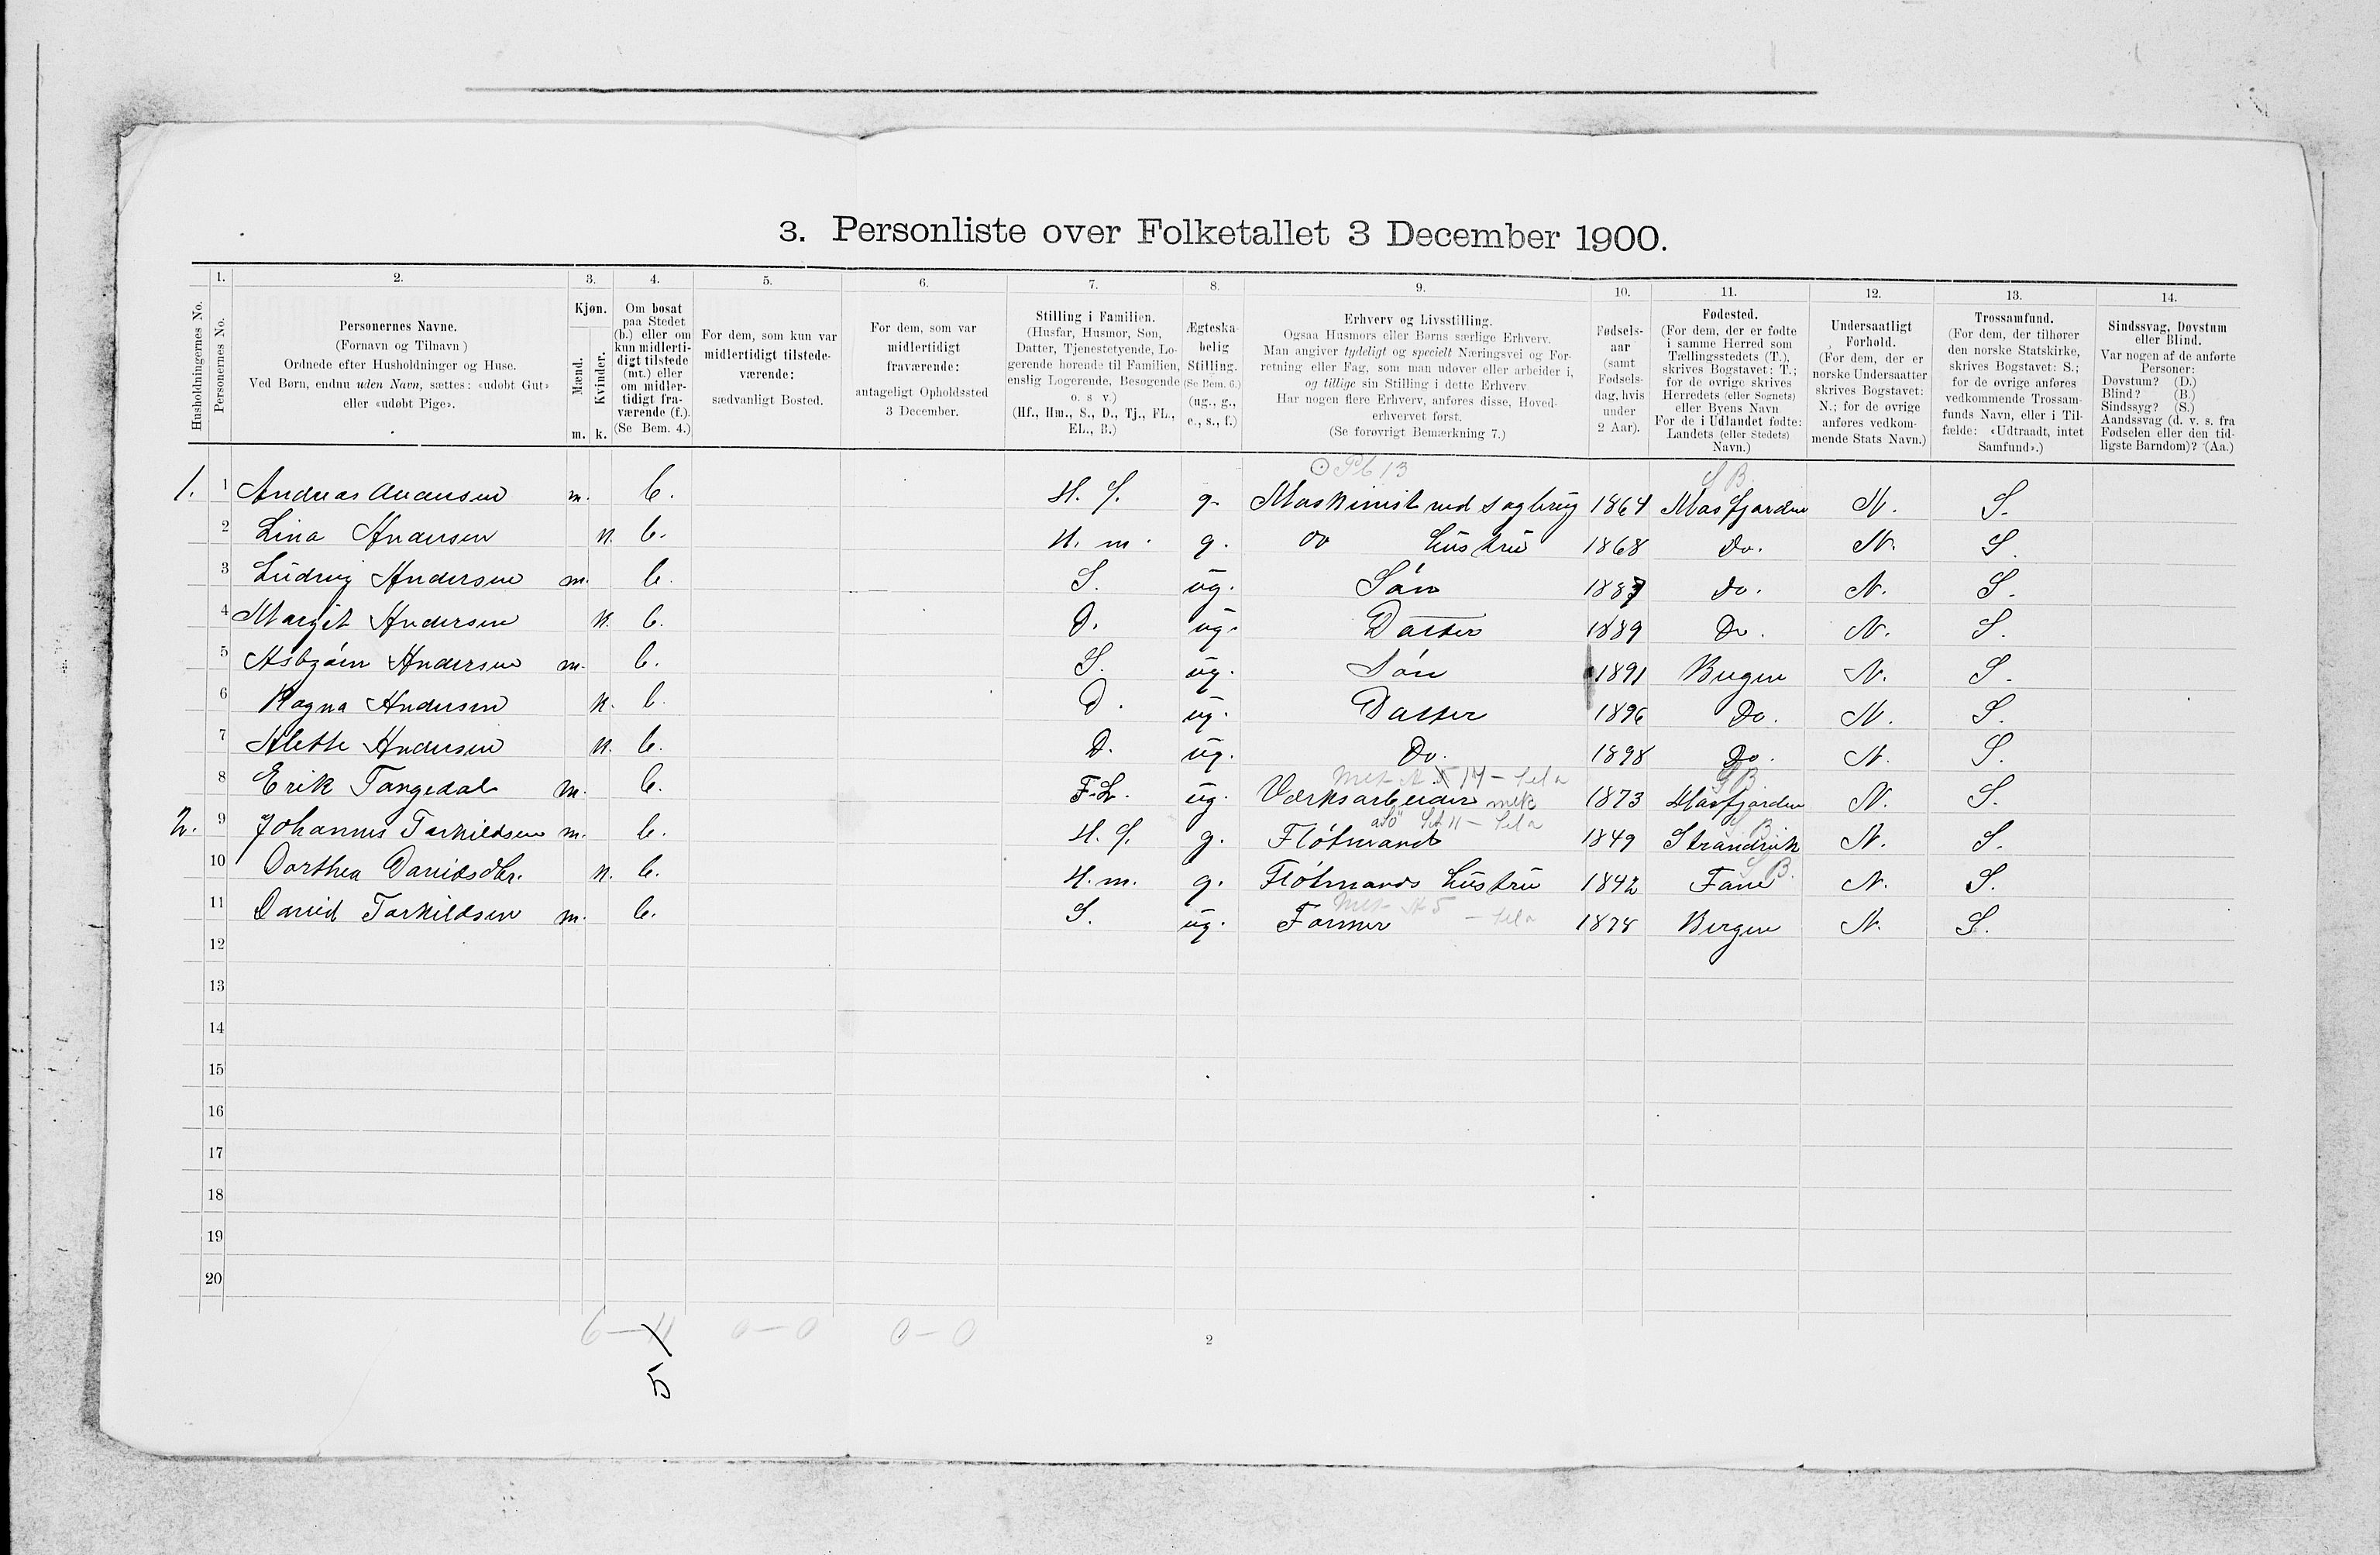 3. Personliste over Folketallet 3 December 1900.
1. 2. 3. 4. 5. 6. 7. 8. 9. 10. 11. 12. 13. 14.
Husholdningernes No.
Personernes No.
Personernes Navne.
(Fornavn og Tilnavn)
Ordnede efter Husholdninger og Huse.
Ved Børn, endnu uden Navn, sættes: «udøbt Gut»
eller «udøbt Pige».
Kjøn.
Mænd.
Kvinder.
m. k.
Om bosat
paa Stedet
(b.) eller om
kun midlerti-
digt tilstede
(mt.) eller
om midler-
tidigt fra-
værende (f.).
(Se Bem. 4.)
For dem, som kun var
midlertidigt tilstede-
værende:
sædvanligt Bosted.
For dem, som var
midlertidigt
fraværende:
antageligt Opholdssted
3 December.
Stilling i Familien.
(Husfar, Husmor, Søn,
Datter, Tjenestetyende, Lo-
gerende hørende til Familien,
enslig Logerende, Besøgende
o. s v.)
(Hf., Hm., S., D., Tj., FL.,
EL., B.)
Ægteska-
belig
Stilling.
(Se Bem. 6.)
(ug., g.,
e., s., f.)
Erhverv og Livsstilling.
Ogsaa Husmors eller Børns særlige Erhverv.
Man angiver tydeligt og specielt Næringsvei og For-
retning eller Fag, som man udøver eller arbeider i,
og tillige sin Stilling i dette Erhverv
Har nogen flere Erhverv, anføres disse, Hoved-
erhvervet først.
(Se forøvrigt Bemærkning 7.)
Fødsels-
aar
(samt
Fødsels-
dag, hvis
under
2 Aar).
Fødested.
(For dem, der er fødte
i samme Herred som
Tællingsstedets (T.),
skrives Bogstavet: T.;
for de øvrige skrives
Herredets (eller Sognets)
eller Byens Navn
For de i Udlandet fødte:
Landets (eller Stedets)
Navn.)
Undersaatligt
Forhold.
(For dem, der er
norske Undersaatter
skrives Bogstavet:
N.; for de øvrige
anføres vedkom-
mende Stats Navn.)
Trossamfund.
(For dem, der tilhører
den norske Statskirke,
skrives Bogstavet: S.;
for de øvrige anføres
vedkommende Trossam-
funds Navn, eller i Til-
fælde: «Udtraadt, intet
Samfund».)
Sindssvag, Døvstum
eller Blind.
Var nogen af de anførte
Personer:
Døvstum? (D.)
Blind? (B.)
Sindssyg? (S.)
Aandssvag (d. v. s. fra
Fødselen eller den tid-
ligste Barndom)? (Aa.)
Pb 13 S B.
1. 1 Andreas Andersen m. b. H. f. g. Maskinist ved sagbrug 1864 Masfjorden N. S.
2 Lina Andersen k. b. H. m. g. do Hustru 1868 Do. N. S.
3 Ludvig Andersen m. b. S. ug. Søn 1887 Do. N. S.
4 Margit Andersen k. b. D. ug. Datter 1889 Do. N. S.
5 Asbjørn Andersen m. b. S. ug. Søn 1891 Bergen N. S.
6 Ragna Andersen k. b. D. ug. Datter 1896 Do. N. S.
7 Alette Andersen k. b. D. ug. Do. 1898 Do. N. S.
8 Erik Tangedal m. b. F.L. ug. Værksarbeider mek 1873 Masfjorden N. S.
2. 9 Johannes Torkildsen m. b. H. f. g. Fløtmand 1849 Strandvik N. S.
10 Dorthea Davidsdtr. k. b. H. m. g. Fløtmands Hustru 1842 Fane N. S.
11 David Torkildsen m. b. S. ug. Former 1878 Bergen N. S.
12
13
14
15
16
17
18
19
20
6 – 0 – 0 0 – 0
5
2